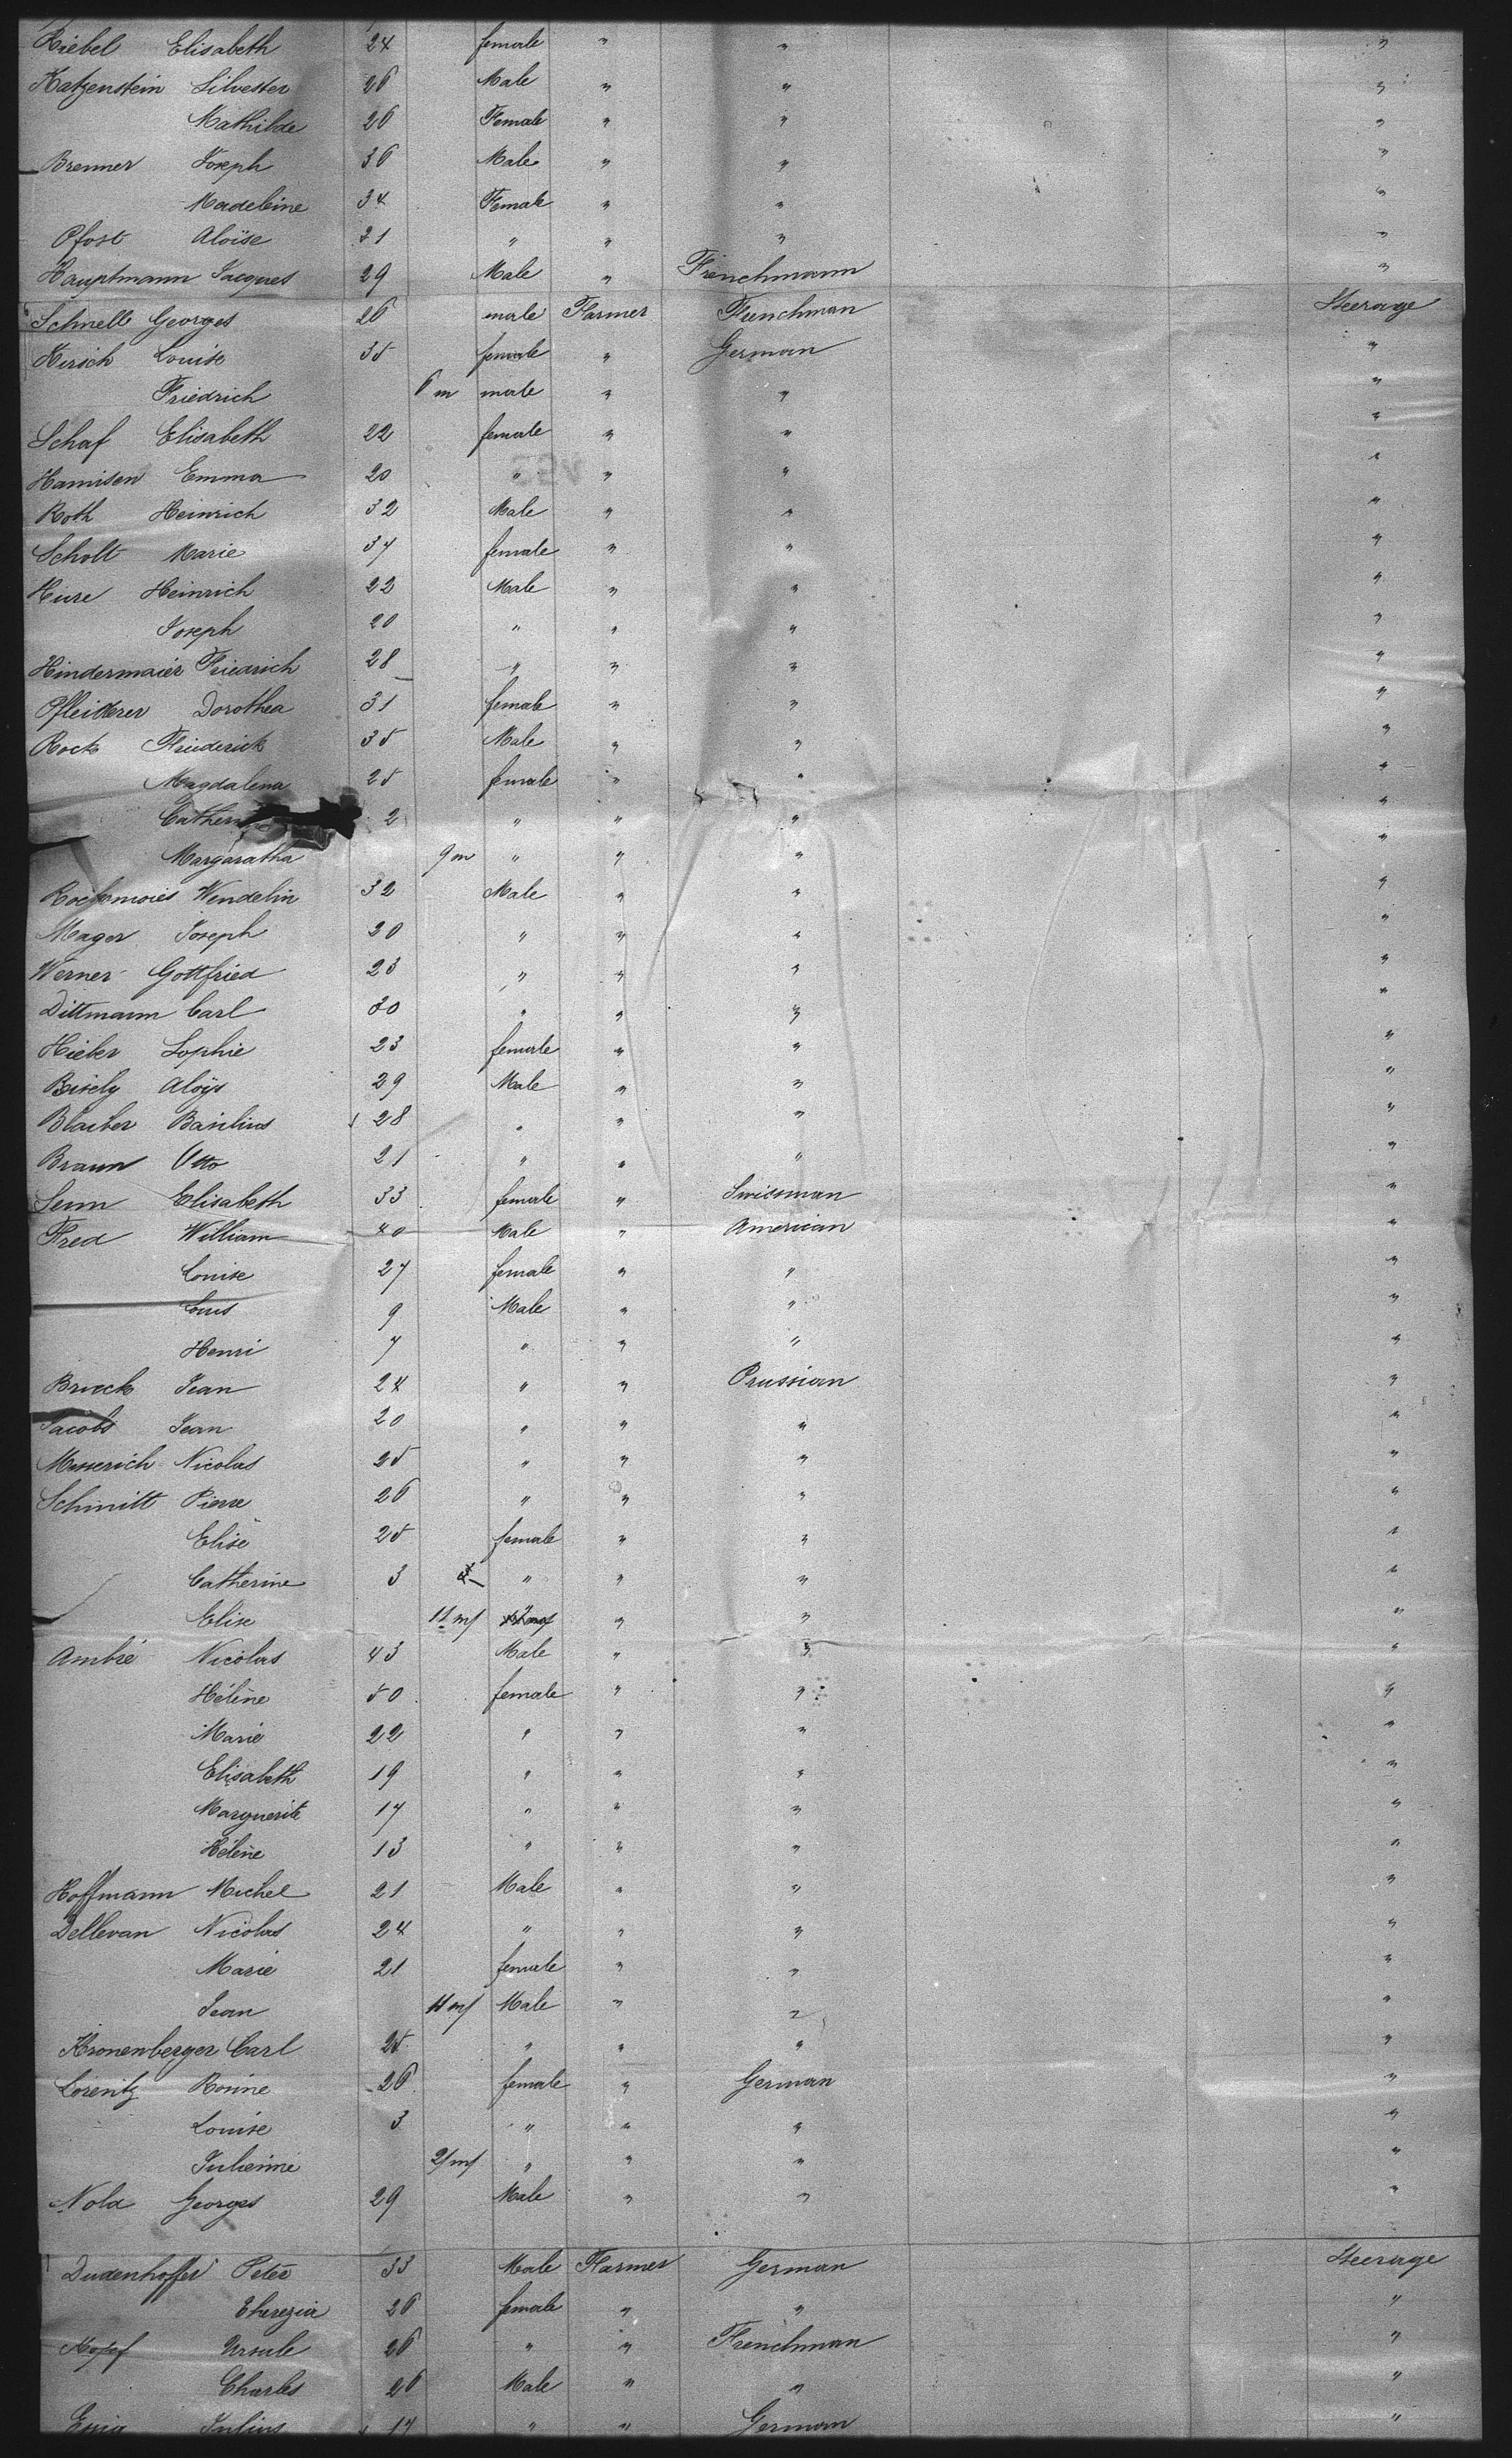 Riebel Elisabeth 24 female " " "
Katzenstein Silvester 26 Male " " "
Mathilde 26 Female " " "
Brenner Joseph 36 Male " " "
Madeleine 34 Female " " "
Pfost Aloïse 21 " " " "
Hauptmann Jacques 29 Male " Frenchmann "
Schnell Georges 26 male Farmer Frenchman Steerage
Hirsch Louise 35 female " German "
Friedrich 6 m male " " "
Schaf Elisabeth 22 female " " "
Hamisen Emma 20 " " " "
Roth Heinrich 32 Male " " "
Scholt Marie 37 female " " "
Hure Heinrich 22 Male " " "
Joseph 20 " " " "
Hindermaier Friedrich 28 " " " "
Pfleiderer Dorothea 31 female " " "
Rock Friederick 35 Male " " "
Magdalena 25 female " " "
2 " " " "
Margaratha 9 m " " " "
Wendelin 32 Male " " "
Mager Joseph 20 " " " "
Werner Gottfried 23 " " " "
Dittmann Carl 30 " " " "
Hieber Sophie 23 female " " "
Bisely Aloys 29 Male " " "
Blaiber Basilius 28 " " " "
Braun Otto 21 " " " "
Senn Elisabeth 33 female " Swissman "
Fred William 40 Male " American "
Louise 27 female " " "
Louis 9 Male " " "
Henri 7 " " " "
Brueck Jean 24 " " Prussian "
Jacobs Jean 20 " " " "
Messerich Nicolas 25 " " " "
Schmitt Pierre 26 " " " "
Elise 25 female " " "
Catherine 3 " " " "
Elise 11 m/ " " "
Ambré Nicolas 43 Male " " "
Hélène 50 female " " "
Marie 22 " " " "
Elisabeth 19 " " " "
Marguerite 17 " " " "
Hélène 13 " " " "
Hoffmann Michel 21 Male " " "
Dellevan Nicolas 24 " " " "
Marie 21 female " " "
Jean 11 m/ Male " " "
Kronenberger Carl 25 " " " "
Lorentz Rosine 26 female " German "
Louise 3 " " " "
Julienne 2/m/ " " " "
Nold Georges 29 Male " " "
Dudenhoffer Peter 33 Male Farmer German Steerage
Therezia 26 female " " "
Kopf Ursule 26 " " Frenchman "
Charles 26 Male " " "
Julius 17 " " German "